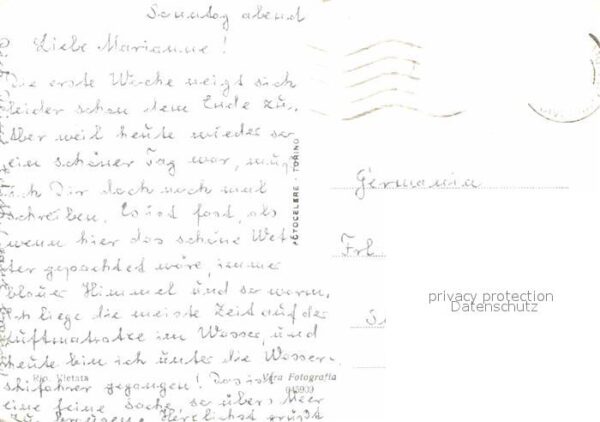 Sonntag abend
Liebe Marianne!
Die erste Woche neigt sich
leider schon dem Ende zu.
Aber weil heute wieder so
ein schöner Tag war, muß
ich Dir doch noch mal
schreiben. Es ist fast, als
wenn hier das schöne Wet-
ter gepachtet wäre, immer
blauer Himmel und so warm.
Ich liege die meiste Zeit auf der
Luftmatratze im Wasser, und
heute bin ich unter die Wasser-
skifahrer gegangen! Das ist
eine feine Sache, so übers Meer
zu brausen. Herzlichst grüßt
Rip. Vietata
Vera Fotografia
045909
FOTOCELERE - TORINO
Germania
Frl
privacy protection
Datenschutz